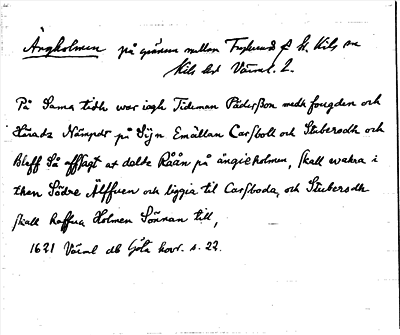 Ängholmen på gränsen mellan Fryksände s. St. Kils sn
Kils hd Värml. L.
På Samma tidh war iagh Tideman Päderßon medh fougden och
Häradz Nämpd på Syn Emällan Carsboll och Stubersdh och
Bleff Så affsagt at dälde Råån på ängieholmen, skall wakra i
then Södre Älffuen och liggia til Carsboda, och Stubersdh
skall haffua Holmen Sönnan till,
1621 Värml db Göta hovr. s. 22.